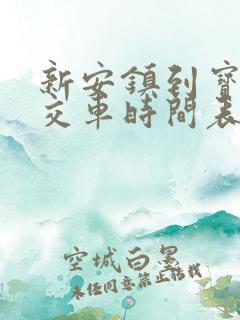 新安鎮到寶
交車時間表
空城白墨
未经同意禁止转载